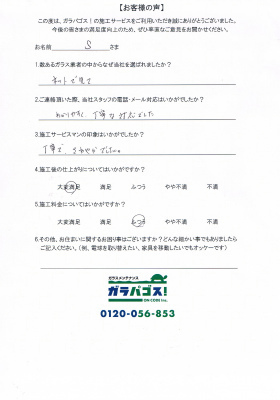 【お客様の声】
この度は、ガラパゴス!の施工サービスをご利用いただき誠にありがとうございました。
今後の皆さまの満足度向上のため、ぜひ率直なご意見をお聞かせください。
お名前 S さま
1.数あるガラス業者の中からなぜ当社を選ばれましたか?
ネットで見て
2.ご連絡頂いた際、当社スタッフの電話・メール対応はいかがでしたか?
わかりやすく、丁寧な対応でした
3.施工サービスマンの印象はいかがでしたか?
丁寧で、さわやかでした。
4.施工後の仕上がりについてはいかがですか?
大変満足 満足 ふつう やや不満 不満
5.施工料金についてはいかがですか?
大変満足 満足 ふつう やや不満 不満
6.その他、お住まいに関するお困り事はございますか?どんな細かい事でもありましたら
ご記入ください。(例、電球を取り替えたい、家具を移動したいでもオッケーです)
ガラスメンテナンス
ガラパゴス!
0120-056-853